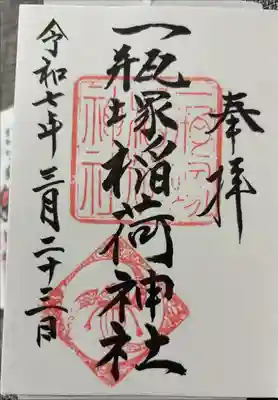 奉拝
一瓶塚稲荷神社
令和七年三月二十三日